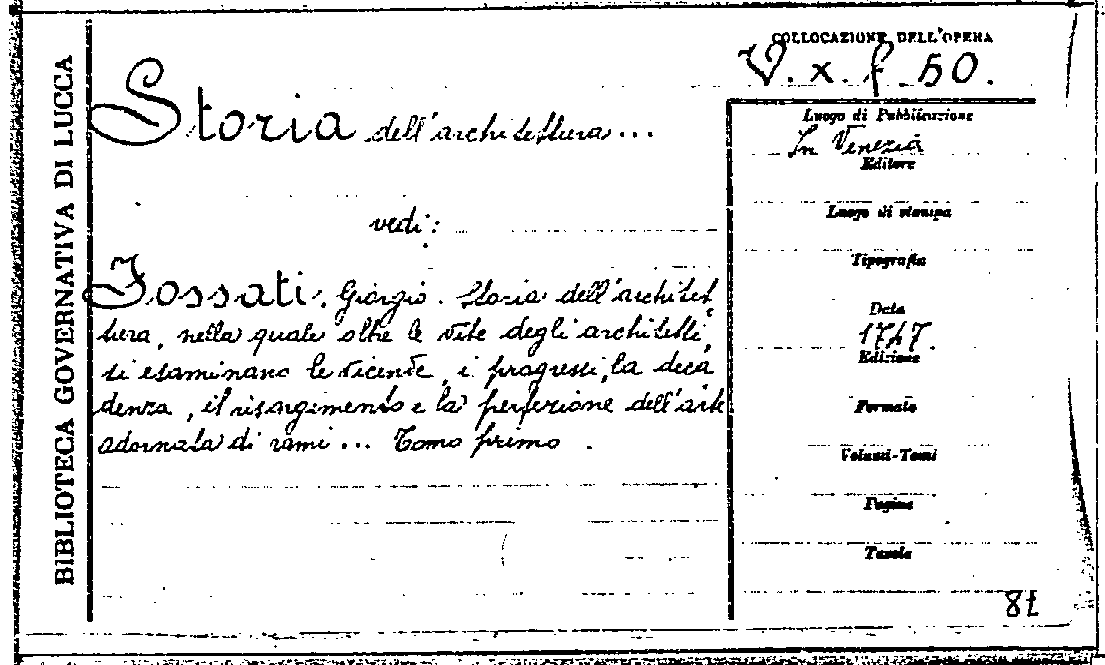 BIBLIOTECA GOVERNATIVA DI LUCCA
COLLOCAZIONE DELL'OPERA
V. x. f. 50.
Storia dell'architettura...
vedi:
Fossati, Giorgio. Storia dell'architet
tura, nella quale oltre le vite degli architetti,
si esaminano le vicende, i progressi, la deca
denza, il risorgimento e la perfezione dell'arte
adornata di rami... Tomo primo.
Luogo di Pubblicazione
In Venezia
Editore
Luogo di stampa
Tipografia
Data
1747.
Edizione
Formato
Volumi-Tomi
Pagine
Tavole